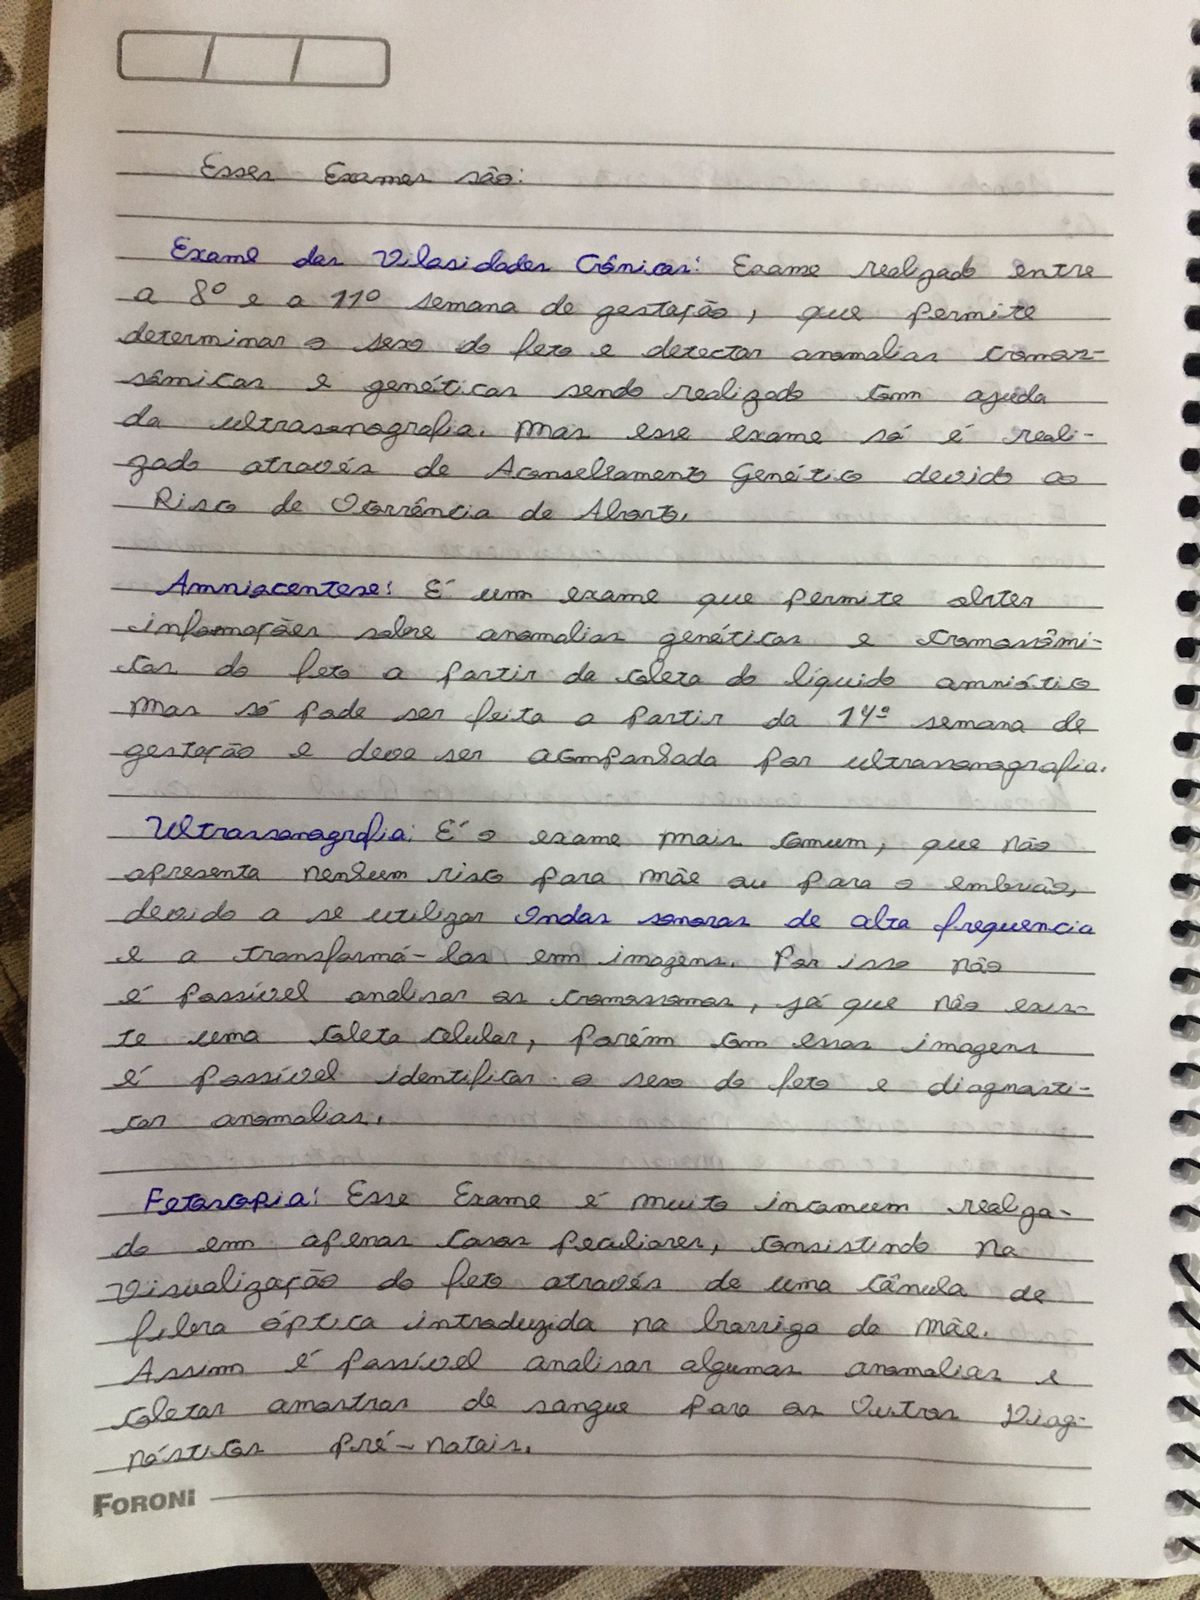 Esses Exames são:
Exame das Vilosidades Criônicas: Exame realizado entre
a 8º e a 11º semana de gestação, que permite
determinar o sexo do feto e detectar anomalias cromos-
sômicas e genéticas sendo realizado com ajuda
da ultrasonografia. Mas esse exame só é reali-
zado através de Aconselhamento Genético devido ao
Risco de Ocorrência de Aborto.
Amniocentese: É um exame que permite obter
informações sobre anomalias genéticas e cromossômi-
cas do feto a partir da coleta do líquido amniótico
Mas só pode ser feita a partir da 14ª semana de
gestação e deve ser acompanhada por ultrassonografia.
Ultrassonografia: É o exame mais comum, que não
apresenta nenhum risco para mãe ou para o embrião,
devido a se utilizar Ondas sonoras de alta frequencia
e a transformá-las em imagens. Por isso não
é possível analisar os cromossomos, já que não exis-
te uma coleta celular, porém com essas imagens
é possível identificar o sexo do feto e diagnosti-
car anomalias.
Fetoscopia: Esse Exame é muito incomum realiza-
do em apenas casos peculiares, consistindo na
visualização do feto através de uma cânula de
fibra óptica introduzida na barriga da mãe.
Assim é possível analisar algumas anomalias e
coletar amostras de sangue para os Outros Diag-
nósticos Pré-natais.
FORONI